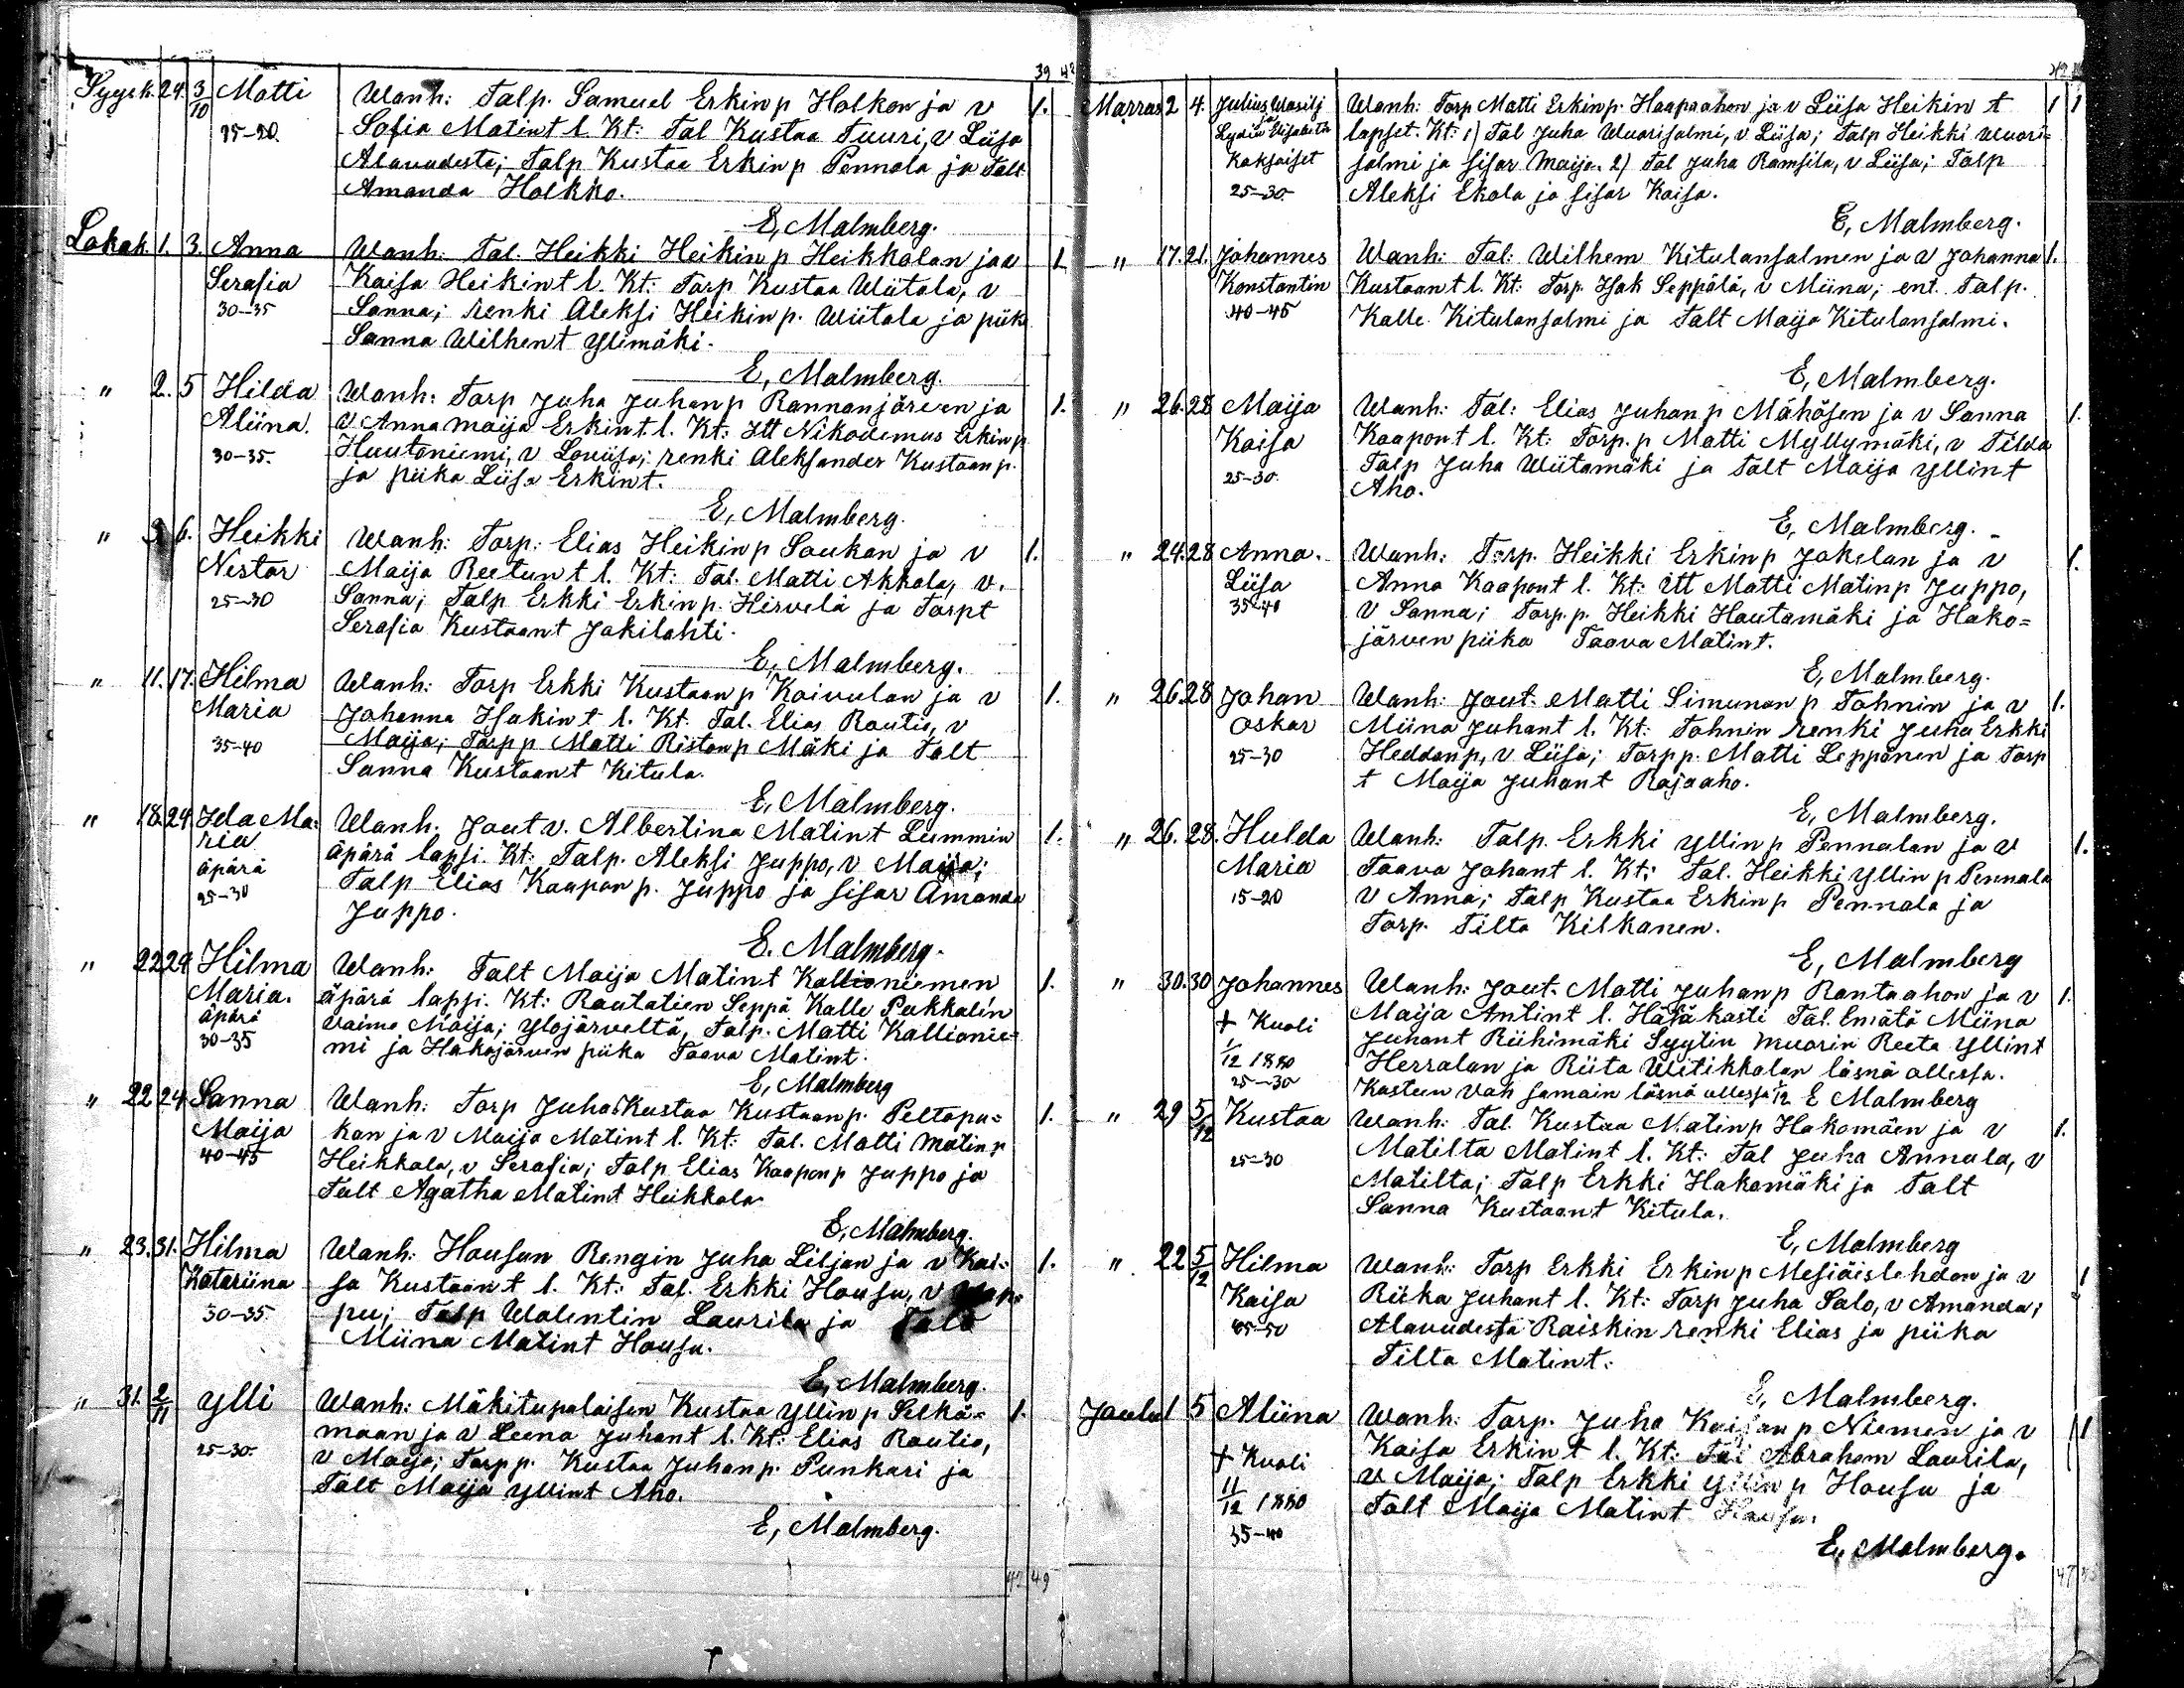 39 42
Syysk. 24. 3/10 Matti Wanh: Talp. Samuel Erkinp Holkon ja v 1.
25-20. Sofia Matint l. Kt: Tal Kustaa Tuuri, v Liisa
Alavudesta; Talp Kustaa Erkinp Pennala ja Talt
Amanda Holkko.
E, Malmberg.
Lokak. 1. 3. Anna Wanh: Tal. Heikki Heikinp Heikkalan ja v 1
Serafia Kaisa Heikint l. Kt: Torp Kustaa Wiitala, v
30-35 Sanna; renki Aleksi Heikinp. Wiitala ja piika
Sanna Wilhemt Ylimäki.
E, Malmberg.
" 2. 5 Hilda Wanh: Torp Juha Juhanp Rannanjärven ja 1.
Aliina. v Annamaija Erkint. l. Kt: Itt Nikodemus Erkinp
30-35. Huutoniemi, v Loviisa; renki Aleksander Kustaanp.
ja piika Liisa Erkint.
E, Malmberg.
" 3 6. Heikki Wanh: Torp: Elias Heikinp Soukan ja v 1.
Nestor Maija Reetunt l. Kt: Tal. Matti Akkola, v.
25-30 Sanna; Talp Erkki Erkinp. Hirvelä ja Torpt
Serafia Kustaant Jokilahti.
E, Malmberg.
" 11. 17. Hilma Wanh: Torp Erkki Kustaanp Koivulan ja v 1.
Maria Johanna Isakint l. Kt: Tal. Elias Rautio, v
35-40 Maija; Torpp Matti Ristonp Mäki ja Talt
Sanna Kustaant Kitula.
E, Malmberg.
" 18. 24. Ida Ma= Wanh. Jout v. Albertina Matint Lummin 1.
ria äpärä lapsi. Kt: Talp. Aleksi Juppo, v Maija;
äpärä Talp Elias Kaapanp. Juppo ja sisar Amanda
25-30 Juppo.
E. Malmberg.
" 22 24 Hilma Wanh: Talt Maija Matint Kallioniemen 1.
Maria. äpärä lapsi. Kt: Rautatien Seppä Kalle Pukkalin
äpärä vaimo Maija; Ylöjärveltä, Talp. Matti Kallionie=
30-35 mi ja Hakojärven piika Taava Matint.
E, Malmberg
" 22 24 Sanna Wanh: Torp Juha Kustaa Kustaanp. Peltopu= 1.
Maija kan ja v Maija Matint l. Kt: Tal. Matti Matinp
40-45 Heikkala, v Serafia; Talp Elias Kaaponp Juppo ja
Talt Agatha Matint Heikkala.
E, Malmberg.
" 23. 31. Hilma Wanh: Housun Rengin Juha Liljan ja v Kai= 1.
Katariina sa Kustaant l. Kt: Tal. Erkki Housu, v Wap=
30-35. pu; Talp Walentin Laurila ja Talt
Miina Matint Housu.
E, Malmberg.
" 31. 2/11 Ylli Wanh: Mäkitupalaisen Kustaa Yllinp Selkä= 1.
25-30. maan ja v Leena Juhant l. Kt: Elias Rautio,
v Maija; Torpp. Kustaa Juhanp. Punkari ja
Talt Maija Yllint Aho.
E, Malmberg.
42 49
Marras 2 4. Julius Wasilj Wanh: Torp Matti Erkinp. Haapaahon ja v Liisa Heikin t 1 1
ja Lydia Elisabeth lapset. Kt: 1) Tal Juha Wuorisalmi, v Liisa; Talp Heikki Wuori=
Kaksoiset salmi ja sisar Maija. 2) Tal Juha Ramsila, v Liisa; Talp
25-30. Aleksi Ekola ja sisar Kaisa.
E, Malmberg.
" 17. 21. Johannes Wanh: Tal: Wilhem Kitulansalmen ja v Johanna 1.
Konstantin Kustaant l. Kt: Torp. Isak Seppälä, v Miina; ent. Talp.
40-45 Kalle Kitulansalmi ja Talt Maija Kitulansalmi.
E, Malmberg.
" 26. 28 Maija Wanh: Tal: Elias Juhanp Mähösen ja v Sanna 1.
Kaisa Kaapont l. Kt: Torp. p Matti Myllymäki, v Tilda
25-30. Talp Juha Wiitamäki ja Talt Maija Yllint
Aho.
E, Malmberg.
" 24. 28 Anna. Wanh: Torp. Heikki Erkinp Jokelan ja v 1.
Liisa Anna Kaapont l. Kt: Itt Matti Matinp Juppo,
35-40 v Sanna; Torp. p. Heikki Hautamäki ja Hako=
järven piika Taava Matint.
E, Malmberg.
" 26. 28 Johan Wanh: Jout. Matti Simunanp Tohnin ja v 1.
Oskar Miina Juhant l. Kt: Tohnin renki Juha Erkki
25-30 Heddanp, v Liisa; Torpp. Matti Leppänen ja Torp
t Maija Juhant Rajaaho.
E, Malmberg.
" 26. 28. Hulda Wanh: Talp. Erkki Yllinp Pennalan ja v 1.
Maria Taava Johant l. Kt: Tal. Heikki Yllinp Pennala
15-20 v Anna; Talp Kustaa Erkinp Pennala ja
Torp. Tilta Kilkanen.
E, Malmberg
" 30. 30 Johannes Wanh: Jout. Matti Juhanp Rantaahon ja v 1.
+ Kuoli Maija Antint l. Hätäkasti Tal. Emätä Miina
1/12 1880 Juhant Riihimäki Syytin muorin Reeta Yllint
25-30 Herralan ja Riita Witikkalan läsnä ollessa.
Kasteen vah samain läsnä ollessa 1/12 E Malmberg
" 29 5/12 Kustaa Wanh: Tal. Kustaa Matinp Hakomäen ja v 1.
25-30 Matilta Matint l. Kt: Tal Juha Annala, v
Matilta; Talp Erkki Hakomäki ja Talt
Sanna Kustaant Kitula.
E, Malmberg
" 22 5/12 Hilma Wanh: Torp Erkki Erkinp Mesiäislehdon ja v 1
Kaisa Riika Juhant l. Kt: Torp Juha Salo, v Amanda;
45-50 Alavudesta Raiskin renki Elias ja piika
Tilta Matint.
E, Malmberg.
Joulu 1 5 Aliina Wanh: Torp. Juha Kaapanp Niemen ja v 1
+ Kuoli Kaisa Erkint l. Kt: Tal Abraham Laurila,
11/12 1880 v Maija; Talp Erkki Yllinp Housu ja
35-40 Talt Maija Matint Housu.
E, Malmberg.
47